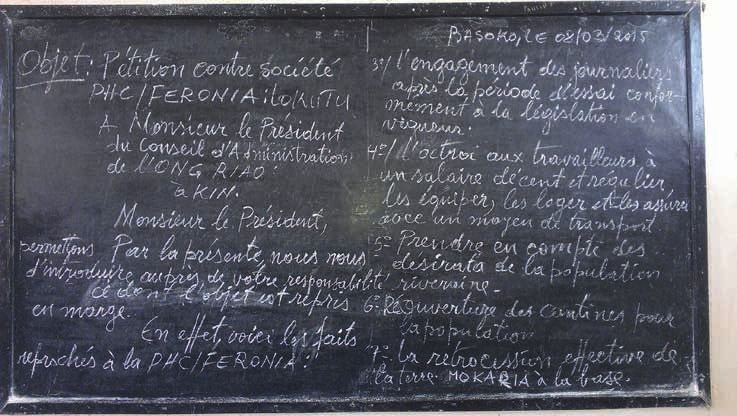 Objet: Pétition contre société
PHC/FERONIA: LOKUTU
A Monsieur le Président
du Conseil d'Administration
de l'ONG RIAO.
à KIN.
Monsieur le Président,
permettons Par la présente, nous nous
d'introduire auprès de votre responsabilité
ce dont l'objet est repris
en marge.
En effet, voici les faits
reprochés à la PHC/FERONIA:
BASOKO, LE 08/03/2015
3°/ l'engagement des journaliers
après la période d'essai confor-
mément à la législation en
vigueur.
4°/ l'octroi aux travailleurs à
un salaire décent et régulier,
les équiper, les loger et les assurer
avec un moyen de transport
5° Prendre en compte des
désirata de la population
riveraine.
6° Réouverture des cantines pour
la population
7° la rétrocession effective de
la terre MOKARIA à la base.